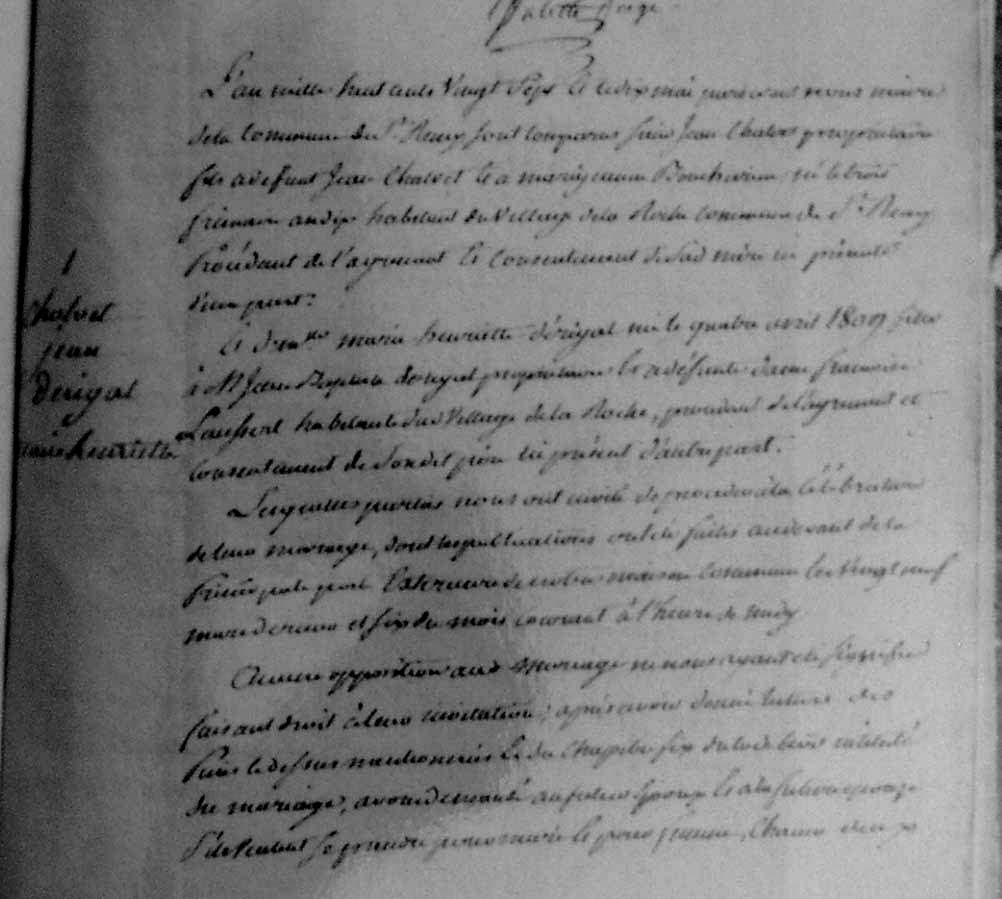 L'an mille huit cents vingt sept et le dix mai par devant nous maire
de la Commune de St Remy sont comparus Jean Chalvet propriétaire
fils a defunt Jean Chalvet et a marie né le trois
frimaire an dix habitant du Village de la Roche commune de St Remy
procédant de l'agrement et consentement de sad mère ici présente
d'une part.
Et dem.lle marie henriette dérigal née le quatre avril 1807 fille
à M Jean Baptiste derigal propriétaire et a défunte dame francoise
habitante dud Village de la Roche, procédant de l'agrement et
consentement de son dit père ici présent d'autre part.
Lesquelles parties nous ont invité de procéder à la célébration
de leur mariage, dont les publications ont été faites au devant de la
porte de notre maison commune les vingt neuf
et six du mois courant à l'heure de midy
Aucune opposition aud mariage ne nous ayant été signifiée
faisant droit à leur invitation; après avoir donné lecture des
pièces ci dessus mentionnées et du chapitre six du code civil intitulé
du mariage, avons demandé au futur époux et a la future épouse
s'ils veulent se prendre pour mari et pour femme, chacun deux
1
Chalvet
jean
Dérigal
marie henriette